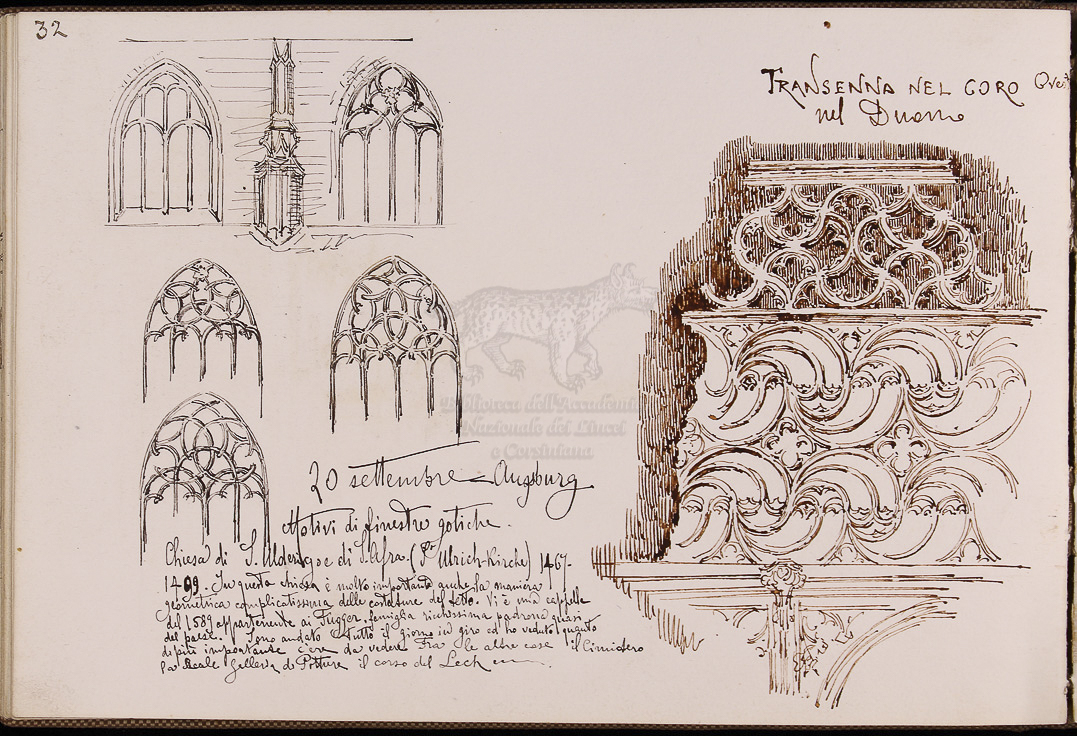 32
TRANSENNA NEL CORO
nel Duomo
Biblioteca dell'Accademia
Nazionale dei Lincei
e Corsiniana
20 settembre – Augsburg
Motivi di finestre gotiche.
Chiesa di S. Ulderigo e di S. Afra. (St Ulrich-Kirche) 1467-
1499. In questa chiesa è molto importante anche la maniera
geometrica complicatissima delle costolature del tetto. Vi è una cappella
del 1589 appartenente ai Fugger, famiglia ricchissima padrona quasi
del paese. Sono andato tutto il giorno in giro ed ho veduto quanto
di più importante c'era da vedere Fra le altre cose il Cimitero
la Reale Galleria di Pitture il corso del Lech